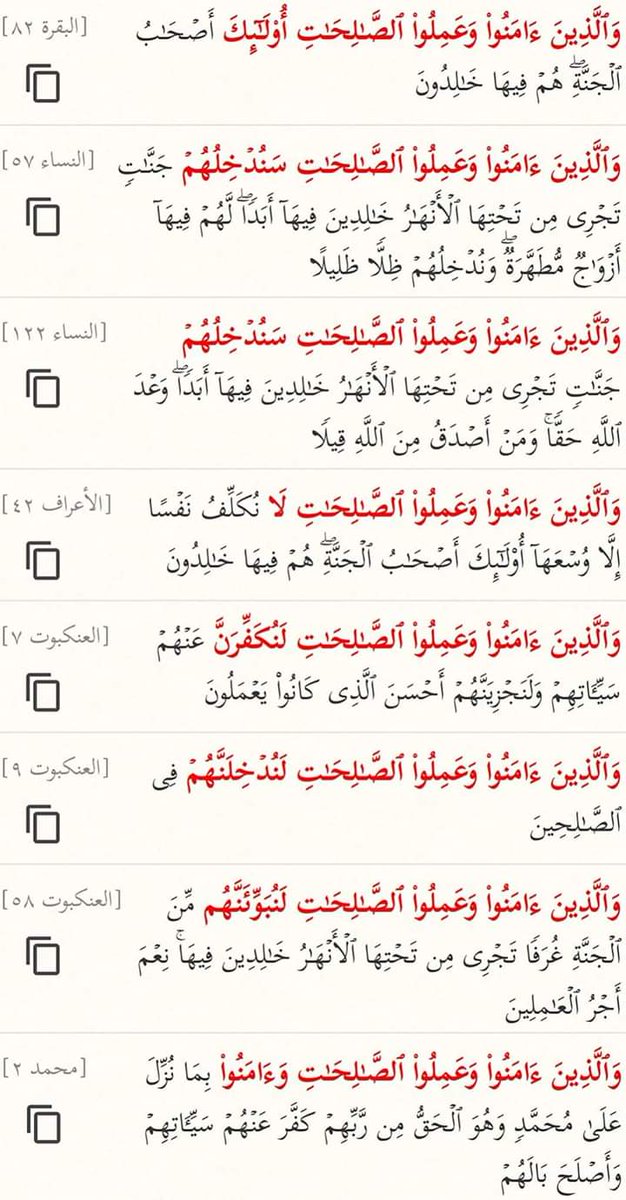 وَٱلَّذِينَ ءَامَنُوا۟ وَعَمِلُوا۟ ٱلصَّـٰلِحَـٰتِ أُو۟لَـٰٓئِكَ أَصْحَـٰبُ [البقرة ٨٢]
ٱلْجَنَّةِ ۖ هُمْ فِيهَا خَـٰلِدُونَ
وَٱلَّذِينَ ءَامَنُوا۟ وَعَمِلُوا۟ ٱلصَّـٰلِحَـٰتِ سَنُدْخِلُهُمْ جَنَّـٰتٍ [النساء ٥٧]
تَجْرِى مِن تَحْتِهَا ٱلْأَنْهَـٰرُ خَـٰلِدِينَ فِيهَآ أَبَدًا ۖ لَّهُمْ فِيهَآ
أَزْوَٰجٌ مُّطَهَّرَةٌ ۖ وَنُدْخِلُهُمْ ظِلًّا ظَلِيلًا
وَٱلَّذِينَ ءَامَنُوا۟ وَعَمِلُوا۟ ٱلصَّـٰلِحَـٰتِ سَنُدْخِلُهُمْ [النساء ١٢٢]
جَنَّـٰتٍ تَجْرِى مِن تَحْتِهَا ٱلْأَنْهَـٰرُ خَـٰلِدِينَ فِيهَآ أَبَدًا ۖ وَعْدَ
ٱللَّهِ حَقًّا ۚ وَمَنْ أَصْدَقُ مِنَ ٱللَّهِ قِيلًا
وَٱلَّذِينَ ءَامَنُوا۟ وَعَمِلُوا۟ ٱلصَّـٰلِحَـٰتِ لَا نُكَلِّفُ نَفْسًا [الأعراف ٤٢]
إِلَّا وُسْعَهَآ أُو۟لَـٰٓئِكَ أَصْحَـٰبُ ٱلْجَنَّةِ ۖ هُمْ فِيهَا خَـٰلِدُونَ
وَٱلَّذِينَ ءَامَنُوا۟ وَعَمِلُوا۟ ٱلصَّـٰلِحَـٰتِ لَنُكَفِّرَنَّ عَنْهُمْ [العنكبوت ٧]
سَيِّـَٔاتِهِمْ وَلَنَجْزِيَنَّهُمْ أَحْسَنَ ٱلَّذِى كَانُوا۟ يَعْمَلُونَ
وَٱلَّذِينَ ءَامَنُوا۟ وَعَمِلُوا۟ ٱلصَّـٰلِحَـٰتِ لَنُدْخِلَنَّهُمْ فِى [العنكبوت ٩]
ٱلصَّـٰلِحِينَ
وَٱلَّذِينَ ءَامَنُوا۟ وَعَمِلُوا۟ ٱلصَّـٰلِحَـٰتِ لَنُبَوِّئَنَّهُم مِّنَ [العنكبوت ٥٨]
ٱلْجَنَّةِ غُرَفًا تَجْرِى مِن تَحْتِهَا ٱلْأَنْهَـٰرُ خَـٰلِدِينَ فِيهَا ۚ نِعْمَ
أَجْرُ ٱلْعَـٰمِلِينَ
وَٱلَّذِينَ ءَامَنُوا۟ وَعَمِلُوا۟ ٱلصَّـٰلِحَـٰتِ وَءَامَنُوا۟ بِمَا نُزِّلَ [محمد ٢]
عَلَىٰ مُحَمَّدٍ وَهُوَ ٱلْحَقُّ مِن رَّبِّهِمْ كَفَّرَ عَنْهُمْ سَيِّـَٔاتِهِمْ
وَأَصْلَحَ بَالَهُمْ